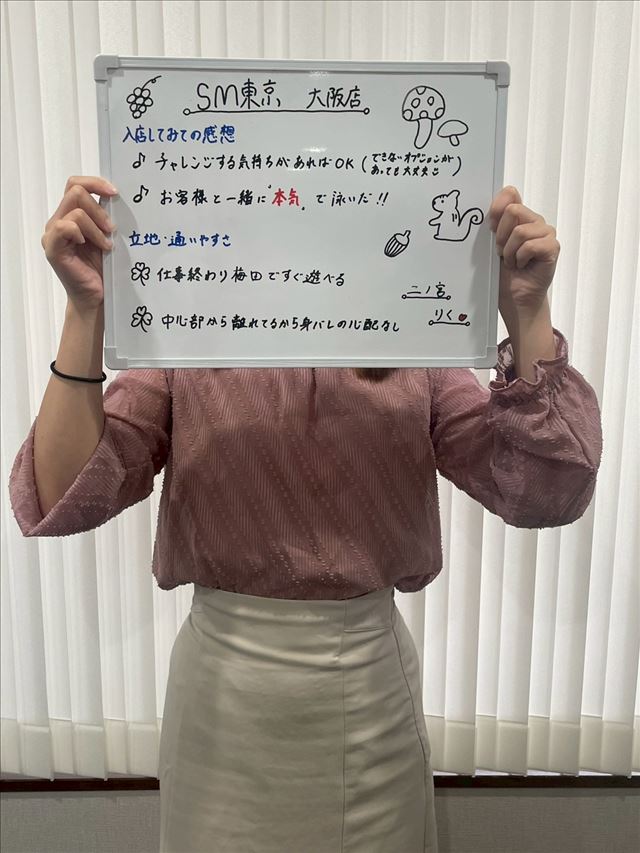 SM東京 大阪店
入店してみての感想
♪ チャレンジする気持ちがあればOK(できないオプションがあっても大丈夫)
♪ お客様と一緒に"本気"で泳いだ!!
立地・通いやすさ
仕事終わり梅田ですぐ遊べる
中心部から離れてるから身バレの心配なし
二ノ宮
りく